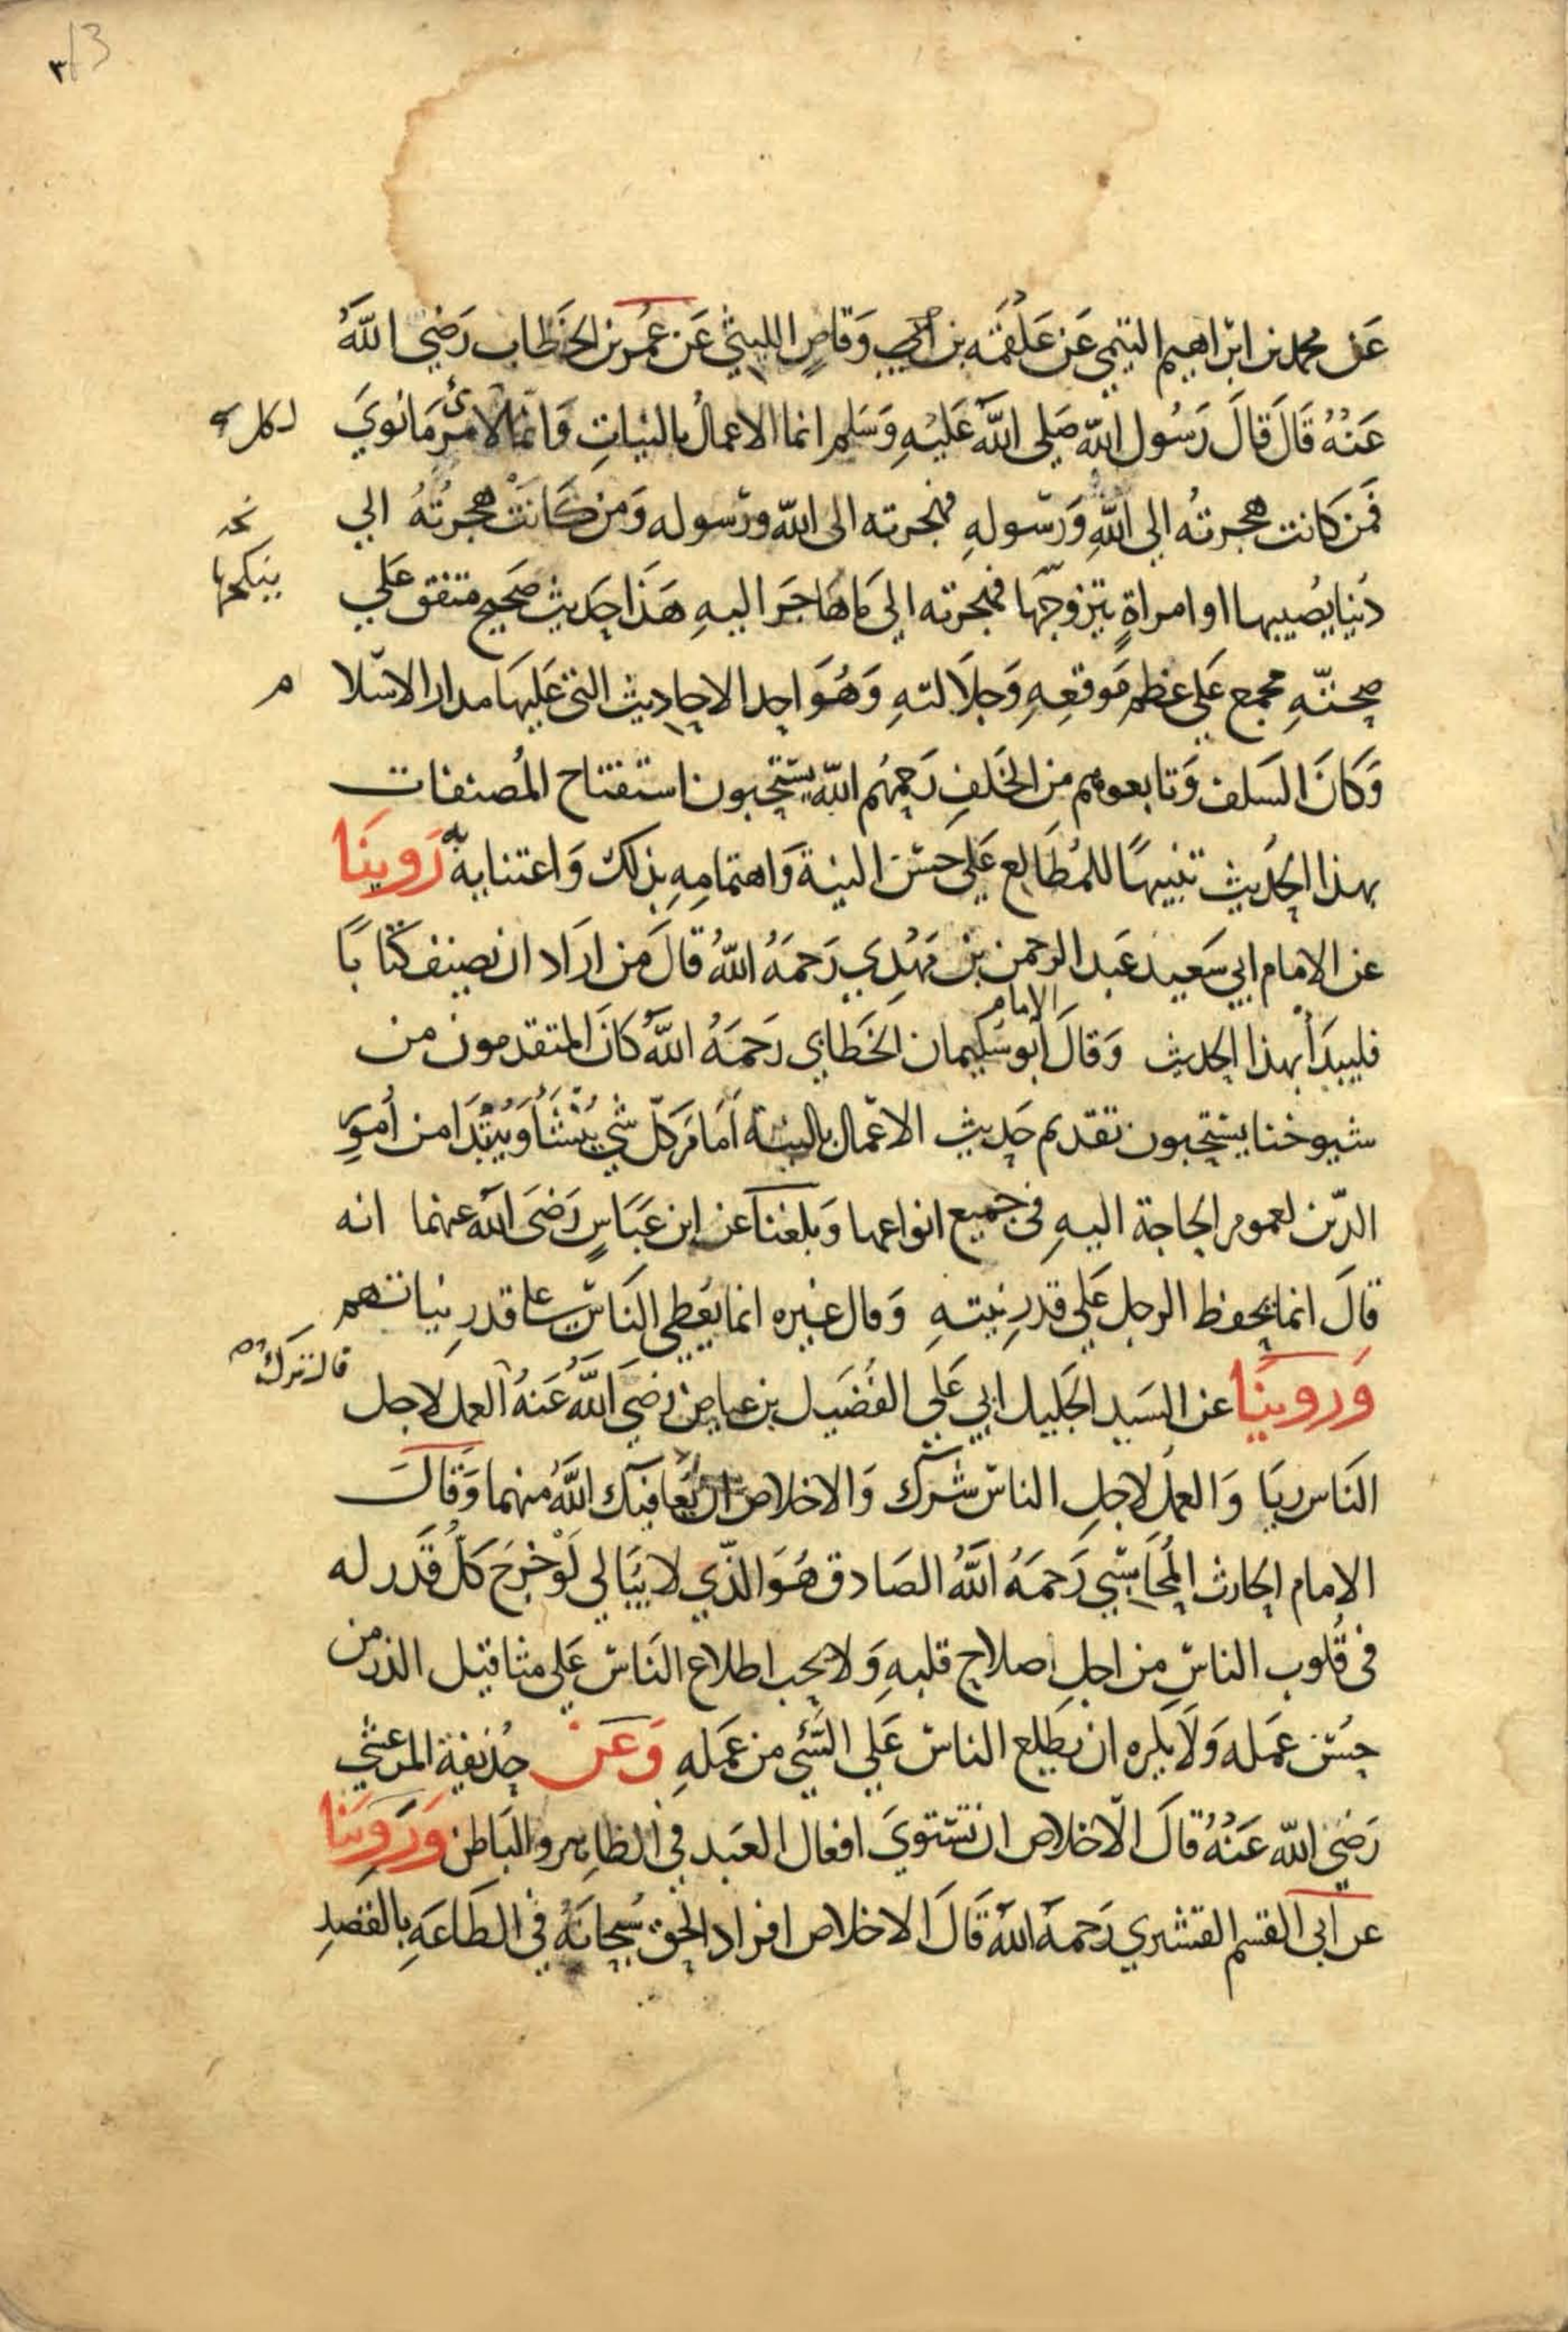 ٣ / 3
عَن محمد بن ابراهيم التيمي عَن عَلقمَة بن وَقاصٍ الليثي عَن عُمَر بن الخَطاب رَضي اللهُ
عَنْهُ قَالَ قَالَ رَسُول الله صَلى اللهُ عَليْهِ وَسَلم انما الاعمالُ بالنياتِ وَانما لامرئ مَا نويَ
لكل
فمَن كانت هجرتُه الي اللهِ وَرسولهِ فهجرته الى الله ورسوله وَمن كَانَتْ هجرتُهُ الي
نخه
دُنيا يصُيبها او امراةٍ يتزوّجهَا فهجرته الىَ مَا هَاجَر اليهِ هَذا حَديث صَحيح متفق عَلي
ينكحها
صحّتهِ مجمع عَلى عظم مَوقعِهِ وَجلاَلتهِ وَهُوَ احد الاحاديث التي عَليهَا مدار الاسْلا
م
وَكَانَ السَلف وَتابعوهم من الخَلفِ رَحِمهُم الله يستحبون استفتاح المُصنفات
بهذا الحَديث تنبيهًا للمُطَالِع عَلي حسْن النية وَاهتمامِهِ بذلك وَاعتنايه به رَوينَا
عن الامام ابي سَعيد عَبد الرحمن بن مَهْدِي رَحمَهُ اللهُ قالَ مَن ارَاد ان يصنف كتابًا
الامام
فليبدَأ بهذا الحديث وَقالَ ابو سُليمان الخَطابي رَحمَهُ اللهُ كانَ المتقدمون من
شيوخنا يستحبون تقديم حَديث الاعمال بالنية اَمامَ كلّ شي يُنْشَأ وَيُبْتدَا من اُمورِ
الدّين لعموم الحاجة اليهِ في جميع انواعها وَبلغنا عن ابن عَبَاسٍ رَضيَ الله عنهما انه
قالَ انما يحفظ الرجل عَلى قدرِ نيتهِ وَقال غيره انما يُعطي النَاسُ على قدرِ نياتهم
قال ترك
وَروينَا عن السَيد الجَليل ابي عَلي الفُضَيل بن عياض رَضيَ اللهُ عَنهُ العمل لاجل
النَاس ريَا وَالعمل لاجلِ الناس شرك وَالاخلاص ان يُعَافيَك اللهُ منهما وَقالَ
الامام الحارث المُحَاسَبي رَحمَهُ اللهُ الصَادق هُوَ الذّي لا يبَالي لوْ خرَجَ كلّ قَدَر له
في قُلوب الناسِ من اجلِ اصلاح قلبهِ وَلا يحب اطلاع النَاس عَلي مثاقيل الذر من
حسْن عمَله وَلاَ يكره ان يَطلع الناس عَلي السَّئ من عمَلهِ وَعَن حُذيفة المرعشي
رَضيَ الله عَنْهُ قالَ الاخلاص ان تسْتويَ افعال العَبد في الظاهر والبَاطن وَرَوينا
عن ابى القسم القشيري رَحمَهُ اللهُ قَالَ الاخلاص افراد الحَق سُبحانَهُ في الطَاعَةِ بالقصدِ